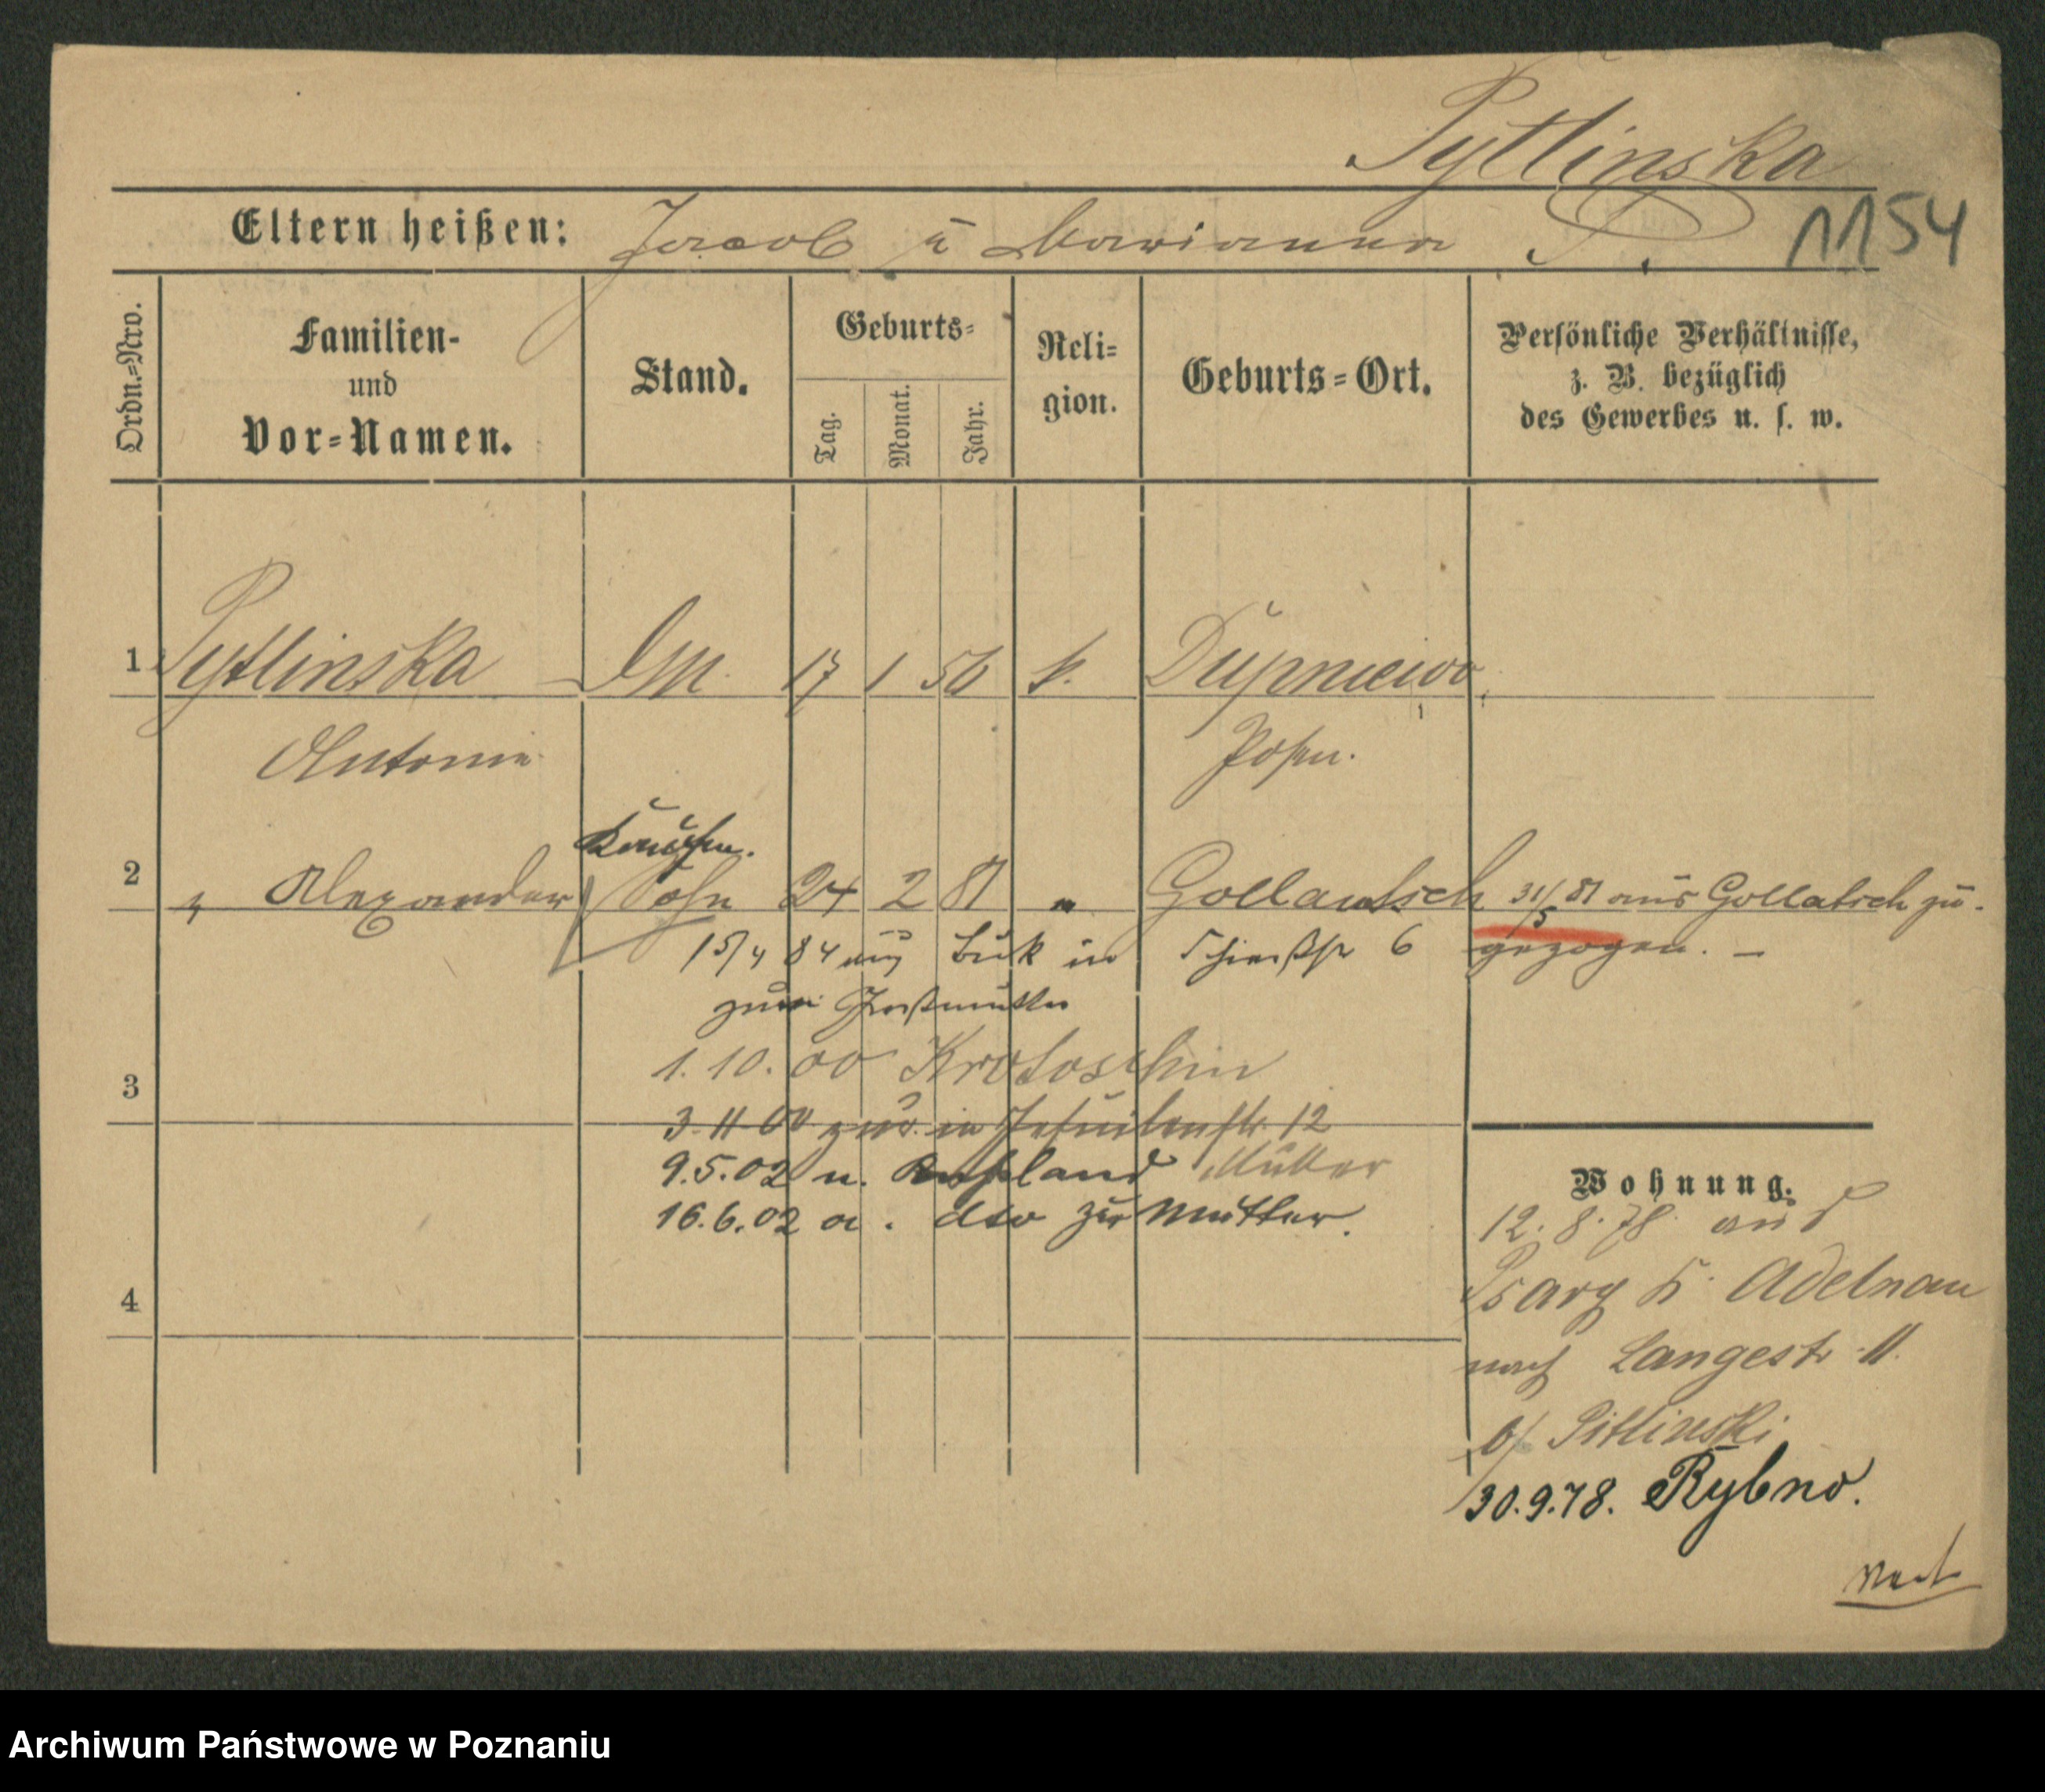 Pytlinska
1154
Eltern heißen: Jacob u Marianna P.
Ordn.=Nro.
Familien-
und
Vor=Namen.
Stand.
Geburts=
Tag.
Monat.
Jahr.
Reli=
gion.
Geburts=Ort.
Persönliche Verhältnisse,
z. B. bezüglich
des Gewerbes u. s. w.
1 Pytlinska 17 1 56 k. Dupniewo,
Antonie Posen.
Kaufm.
2 " Alexander Sohn 24 2 81 " Gollantsch 31/5 81 aus Gollatsch zu-
gezogen. –
15/4 84 aus Buk in Schießstr 6
zur Großmutter
1.10.00 Krotoschin
3
3.11.00 zur. in Jesuitenstr. 12
9.5.02 n. Russland Mutter
16.6.02 a. dto zur Mutter.
Wohnung.
12.8.78 aus
Psary K. Adelnau
nach Langestr 11.
b/ Pitlinski
30.9.78. Rybno.
4
Archiwum Państwowe w Poznaniu